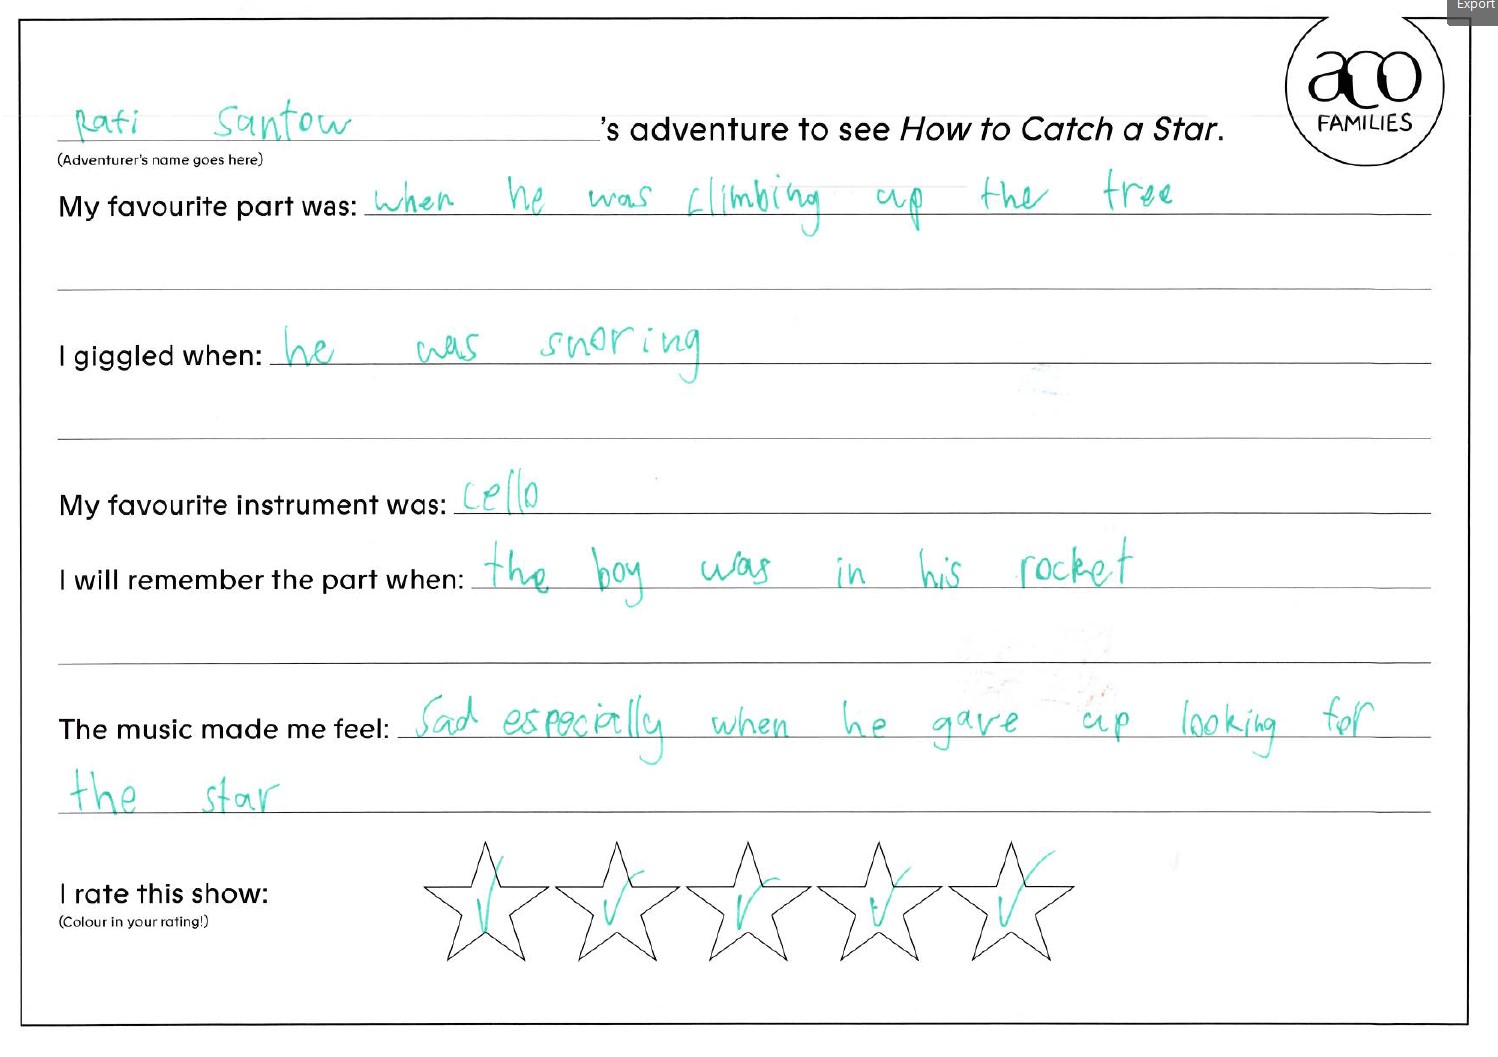 Export
aco
FAMILIES
Rafi Santow 's adventure to see How to Catch a Star.
(Adventurer's name goes here)
My favourite part was: when he was climbing up the tree
I giggled when: he was snoring
My favourite instrument was: cello
I will remember the part when: the boy was in his rocket
The music made me feel: Sad especially when he gave up looking for
the star
I rate this show:
(Colour in your rating!)